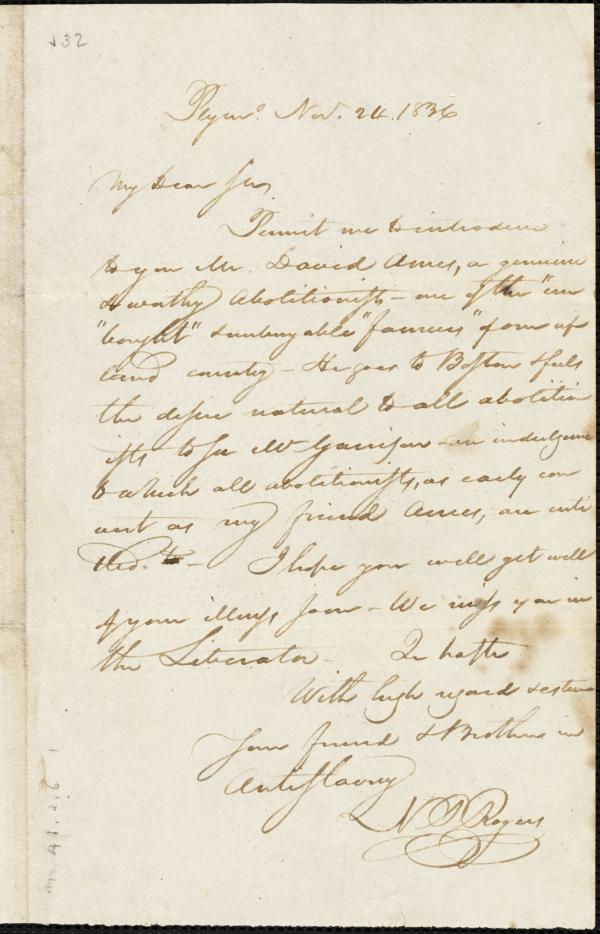 132
Plymo. Nov. 24. 1836
My Dear Sir
Permit me to introduce
to you Mr. David Ames, a genuine
& worthy Abolitionist - one of the "un
"bought" & unbuyable "farmers" of our up
land country - He goes to Boston & feels
the desire natural to all abolition
ists to see Mr Garrison - an indulgence
to which all abolitionists, as early con
vert as my friend Ames, are enti
tled. to - I hope you will get well
of your illness soon - We miss you in
the Liberator - In haste
With high regard & esteem
Your friend & Brother in
Antislavery
N P Rogers
Ms. A 1. 2. 6